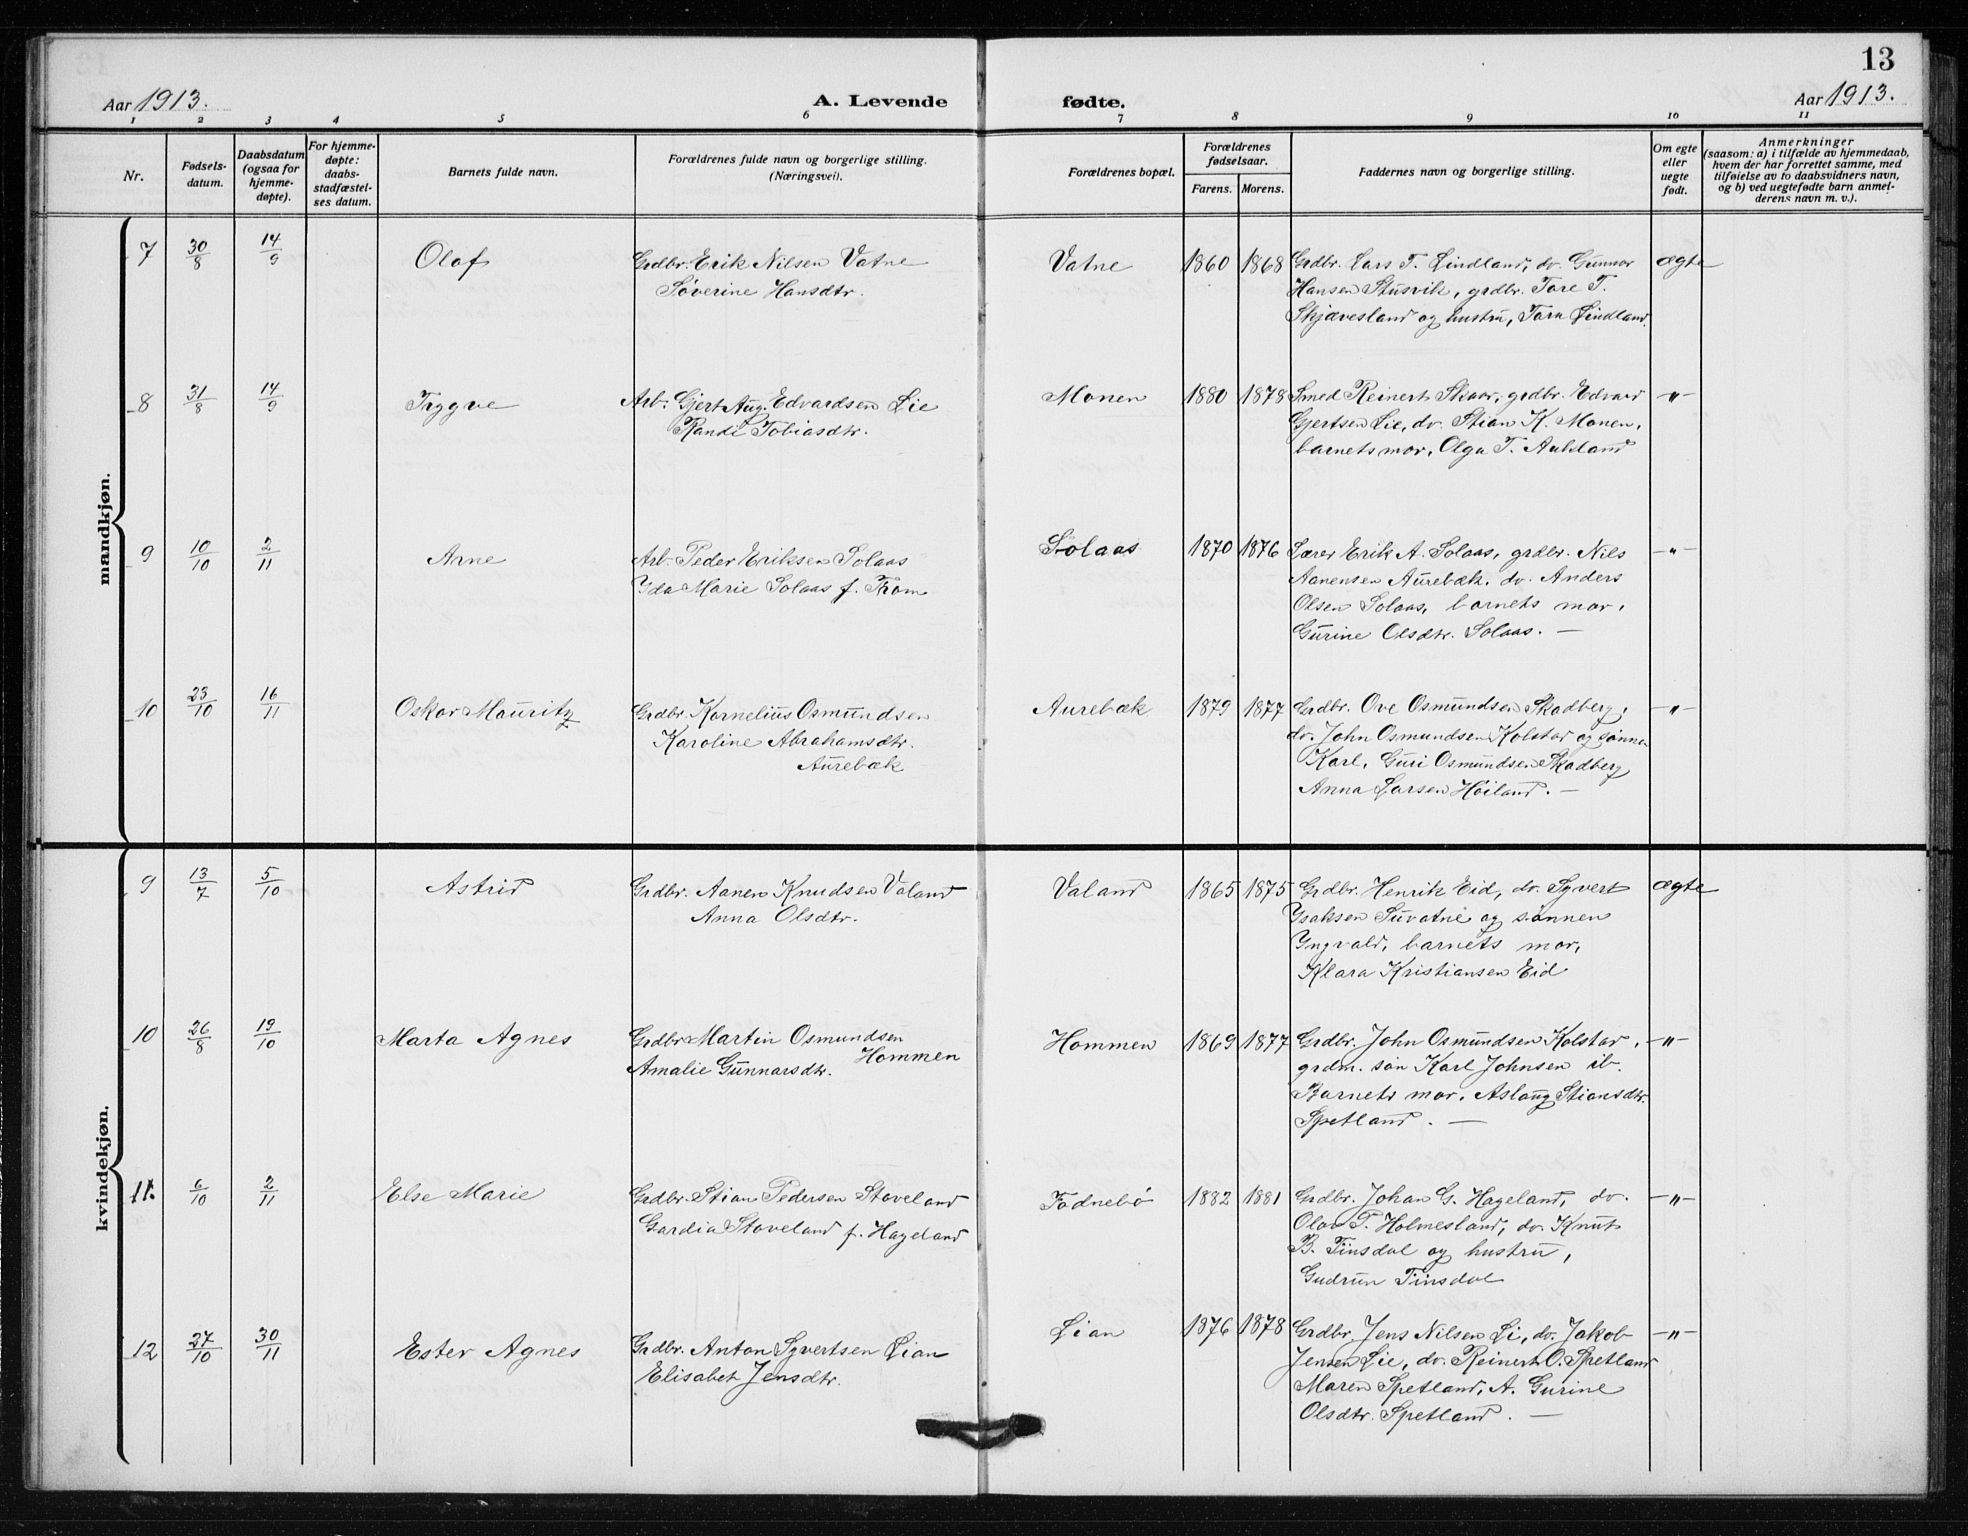 13
Aar 1913. A. Levende fødte. Aar 1913.
1 2 3 4 5 6 7 8 9 10 11
Nr.
Fødsels-
datum.
Daabsdatum
(ogsaa for
hjemme-
døpte).
For hjemme-
døpte:
daabs-
stadfæstel-
ses datum.
Barnets fulde navn.
Forældrenes fulde navn og borgerlige stilling.
(Næringsvei).
Forældrenes bopæl.
Forældrenes
fødselsaar.
Farens. Morens.
Faddernes navn og borgerlige stilling.
Om egte
eller
uegte
født.
Anmerkninger
(saasom: a) i tilfælde av hjemmedaab,
hvem der har forrettet samme, med
tilføielse av to daabsvidners navn,
og b) ved uegtefødte barn anmel-
derens navn m. v.).
mandkjøn.
7 30/8 14/9 Olaf
Grdbr. Erik Nilsen Vatne
Søverine Hansdtr.
Vatne 1860 1868
Grdbr. Lars T. Lindland, do. Gunnar
Hansen Stusvik, grdbr. Tore T.
Skjævesland og hustru, Tora Lindland.
ægte
8 31/8 14/9 Tryggve
Arb. Gjert Aug. Edvardsen Lie
Randi Tobiasdtr.
Monen 1880 1878
Smed Reinert Skaar, grdbr. Edvard
Gjertsen Lie, do. Stian K. Monen,
barnets mor, Olga T. Aukland
-"-
9 10/10 2/11 Arne
Arb. Peder Eriksen Solaas
Yda Marie Solaas f. From
Solaas 1870 1876
Lærer Erik A. Solaas, grdbr. Nils
Aanensen Aurebæk, do. Anders
Olsen Solaas, barnets mor,
Gurine Olsdtr. Solaas. —
-"-
10 23/10 16/11 Oskar Mauritz
Grdbr. Kornelius Osmundsen
Karoline Abrahamsdtr.
Aurebæk
Aurebæk 1879 1877
Grdbr. Ove Osmundsen Skadberg,
do. John Osmundsen Kolstad og sønnen
Karl, Guri Osmundsen Skadberg
Anna Larsen Høiland. —
-"-
kvindekjøn.
9 13/7 5/10 Astrid
Grdbr. Aanen Knudsen Valand
Anna Olsdtr.
Valand 1865 1875
Grdbr. Henrik Eid, do. Syvert
Ysaksen Suvatne og sønnen
Yngvald, barnets mor,
Klara Kristiansen Eid
ægte
10 26/8 19/10 Marta Agnes
Grdbr. Martin Osmundsen
Hommen
Amalie Gunnarsdtr.
Hommen 1869 1877
Grdbr. John Osmundsen Kolstad,
grdm. søn Karl Johnsen ib.
Barnets mor, Aslaug Stiansdtr.
Spetland. —
-"-
11. 6/10 2/11 Else Marie
Grdbr. Stian Pedersen Staveland
Gardia Staveland f. Hageland
Fodnebø 1882 1881
Grdbr. Johan G. Hageland, do.
Olav P. Holmesland, do. Knut
B. Tinsdal og hustru,
Gudrun Tinsdal
-"-
12 27/10 30/11 Ester Agnes
Grdbr. Anton Syvertsen Lian
Elisabet Jensdtr.
Lian 1876 1878
Grdbr. Jens Nilsen Li, do. Jakob
Jensen Lie, do. Reinert O. Spetland
Maren Spetland, A. Gurine
Olsdtr. Spetland. —
-"-